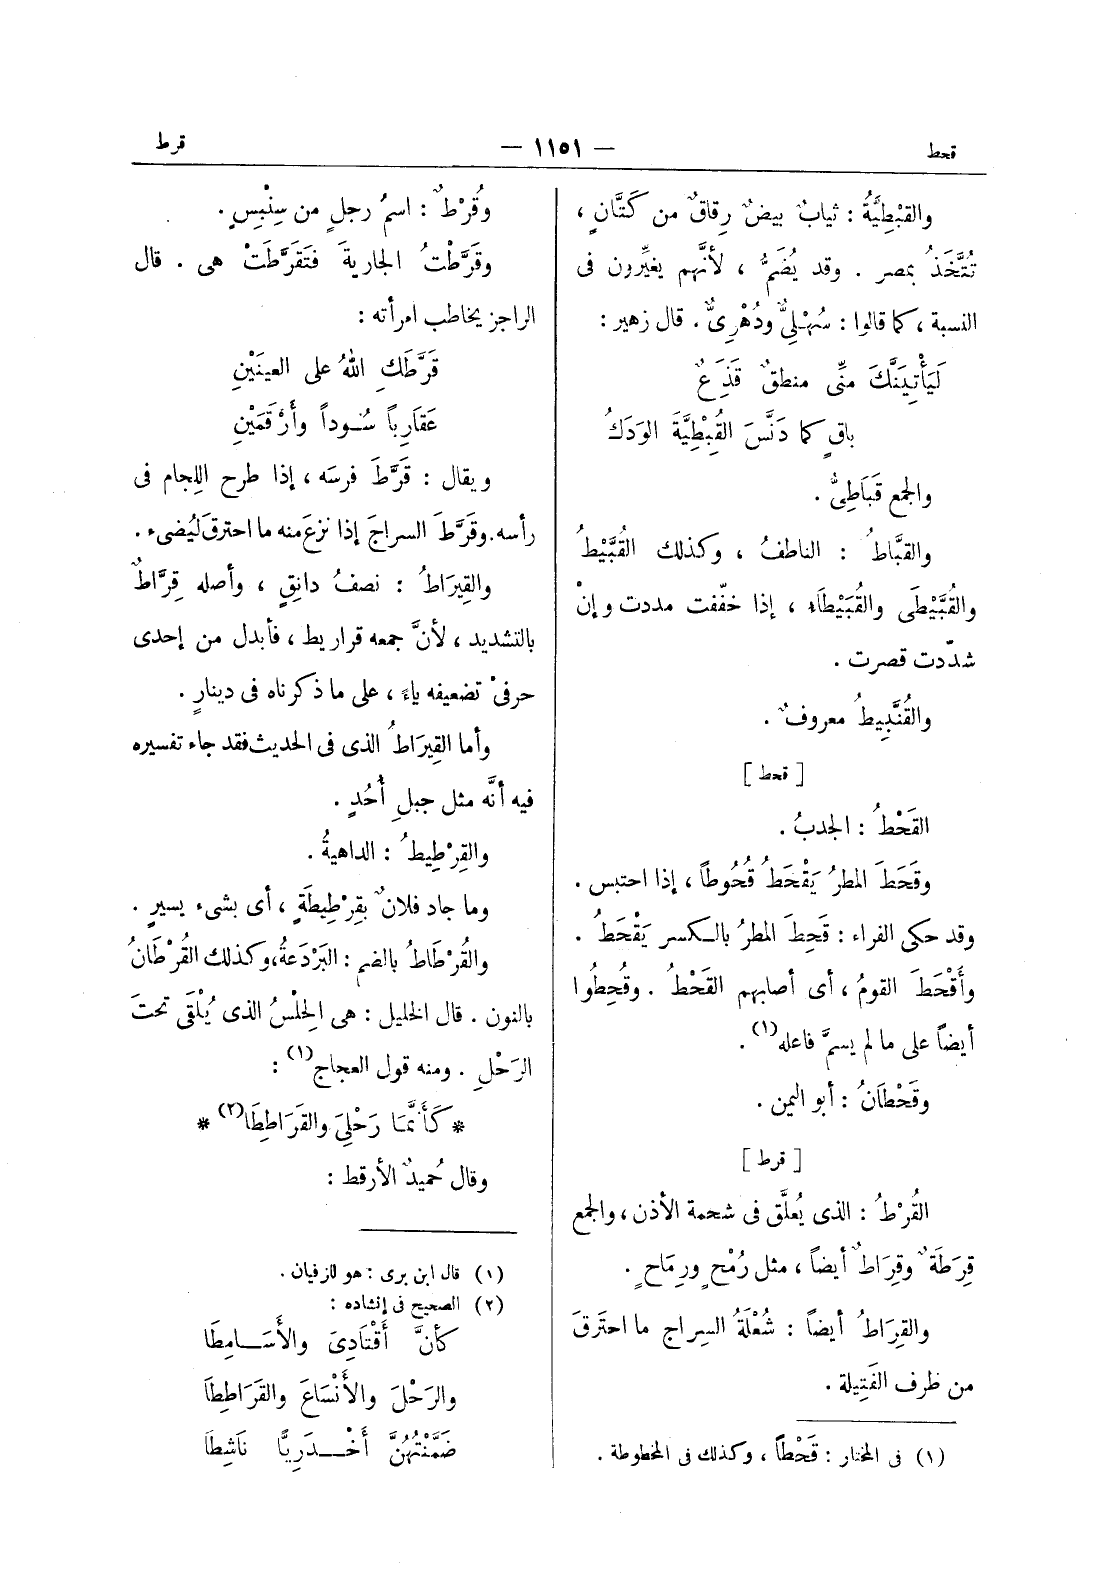 قحط
— ١١٥١ —
قرط
والقبْطِيَّةُ : ثيابٌ بيضٌ رِقاقٌ من كَتَّانٍ ،
تُتَّخَذُ بمصر . وقد يُضَمُّ ، لأنَّهم يغيِّرون فى
النسبة ، كما قالوا : سُهْلِيٌّ ودُهْرِيٌّ . قال زهير :
لَيَأْتِيَنَّكَ منِّى منطقٌ قَذَعٌ
باقٍ كما دَنَّسَ القُبْطِيَّةَ الوَدَكُ
والجمع قَبَاطِىُّ .
والقبَّاطُ : الناطفُ ، وكذلك القُبَّيْطُ
والقُبَّيْطَى والقُبَيْطَاء ، إذا خفّفت مددت وإنْ
شدّدت قصرت .
والقُنَّبِيطُ معروفٌ .
[ قحط ]
القَحْطُ : الجدبُ .
وقَحَطَ المطرُ يَقْحَطُ قُحُوطاً ، إذا احتبس .
وقد حكى الفراء : قَحِطَ المطرُ بالكسر يَقْحَطُ .
وأَقْحَطَ القومُ ، أى أصابهم القَحْطُ . وقُحِطُوا
أيضاً على ما لم يسمَّ فاعله(١) .
وقَحْطَانُ : أبو اليمن .
[ قرط ]
القُرْطُ : الذى يُعلَّق فى شحمة الأذن ، والجمع
قِرَطَةٌ وقِرَاطٌ أيضاً ، مثل رُمْحٍ ورِمَاحٍ .
والقِرَاطُ أيضاً : شُعْلَةُ السِراج ما احترَقَ
من طرف الفَتِيلة .
(١) فى المختار : قَحْطاً ، وكذلك فى المخطوطة .
وقُرْطٌ : اسمُ رجلٍ من سِنْبِسٍ .
وقَرَّطْتُ الجاريةَ فتَقَرَّطَتْ هى . قال
الراجز يخاطب امرأته :
قَرَّطَكِ اللهُ على العينَيْنِ
عَقَارِباً سُـوداً وأَرْقَمَيْنِ
ويقال : قَرَّطَ فرسَه ، إذا طرح اللِجام فى
رأسه. وقَرَّطَ السراجَ إذا نزعَ منه ما احترقَ ليُضىء .
والقِيرَاطُ : نصفُ دانِقٍ ، وأصله قِرَّاطٌ
بالتشديد ، لأنَّ جمعه قراريط ، فأبدل من إحدى
حرفىْ تضعيفه ياءً ، على ما ذكرناه فى دينارٍ .
وأما القِيرَاطُ الذى فى الحديث فقد جاء تفسيره
فيه أنَّه مثل جبلِ أُحُدٍ .
والقِرْطِيطُ : الداهيةُ .
وما جاد فلانٌ بقِرْطِيطَةٍ ، أى بشىء يسيرٍ .
والقُرْطَاطُ بالضم : البَرْدَعةُ، وكذلك القُرْطَانُ
بالنون . قال الخليل : هى الحِلْسُ الذى يُلْقَى تحتَ
الرَحْلِ . ومنه قول العجاج(١) :
* كَأَنَّمَا رَحْلِىَ والقَرَاطِطَا(٢) *
وقال حُميدٌ الأرقط :
(١) قال ابن برى : هو للزفيان .
(٢) الصحيح فى إنشاده :
كأنَّ أَقْتَادِىَ والأَسَـامِطَا
والرَحْلَ والأَنْسَاعَ والقَرَاطِطَا
ضَمَّنْتُهُنَّ أَخْـدَرِيًّا نَاشِطَا